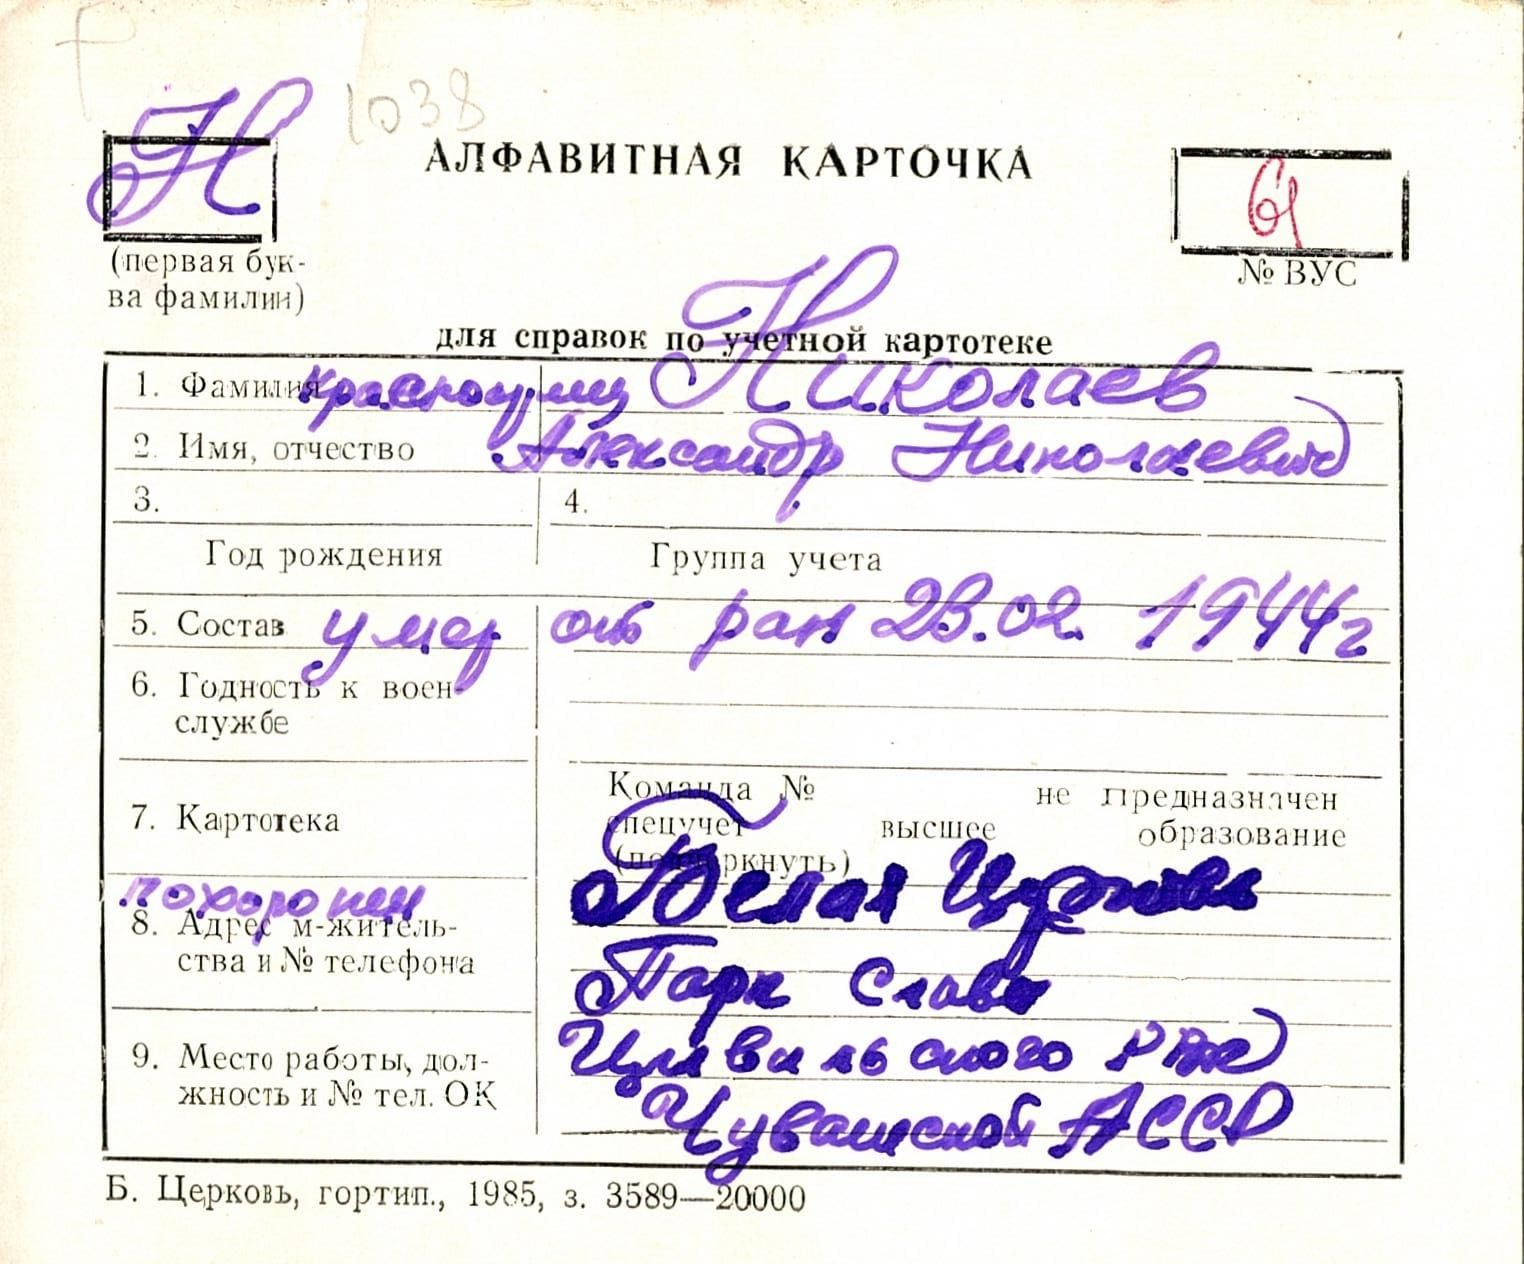 1038
Н
АЛФАВИТНАЯ КАРТОЧКА
61
(первая бук-
ва фамилии)
№ ВУС
для справок по учетной картотеке
1. Фамилия красноармеец Николаев
2. Имя, отчество Александр Николаевич
3. 4.
Год рождения Группа учета
5. Состав умер от ран 23.02. 1944 г
6. Годность к воен-
службе
Команда № не предназначен
7. Картотека
спецучет высшее образование
(подчеркнуть)
похоронен Белая Церковь
8. Адрес м-житель-
ства и № телефона
Парк Славы
Цивильского РВК
9. Место работы, дол-
жность и № тел. ОК
Чувашской АССР
Б. Церковь, гортип., 1985, з. 3589—20000